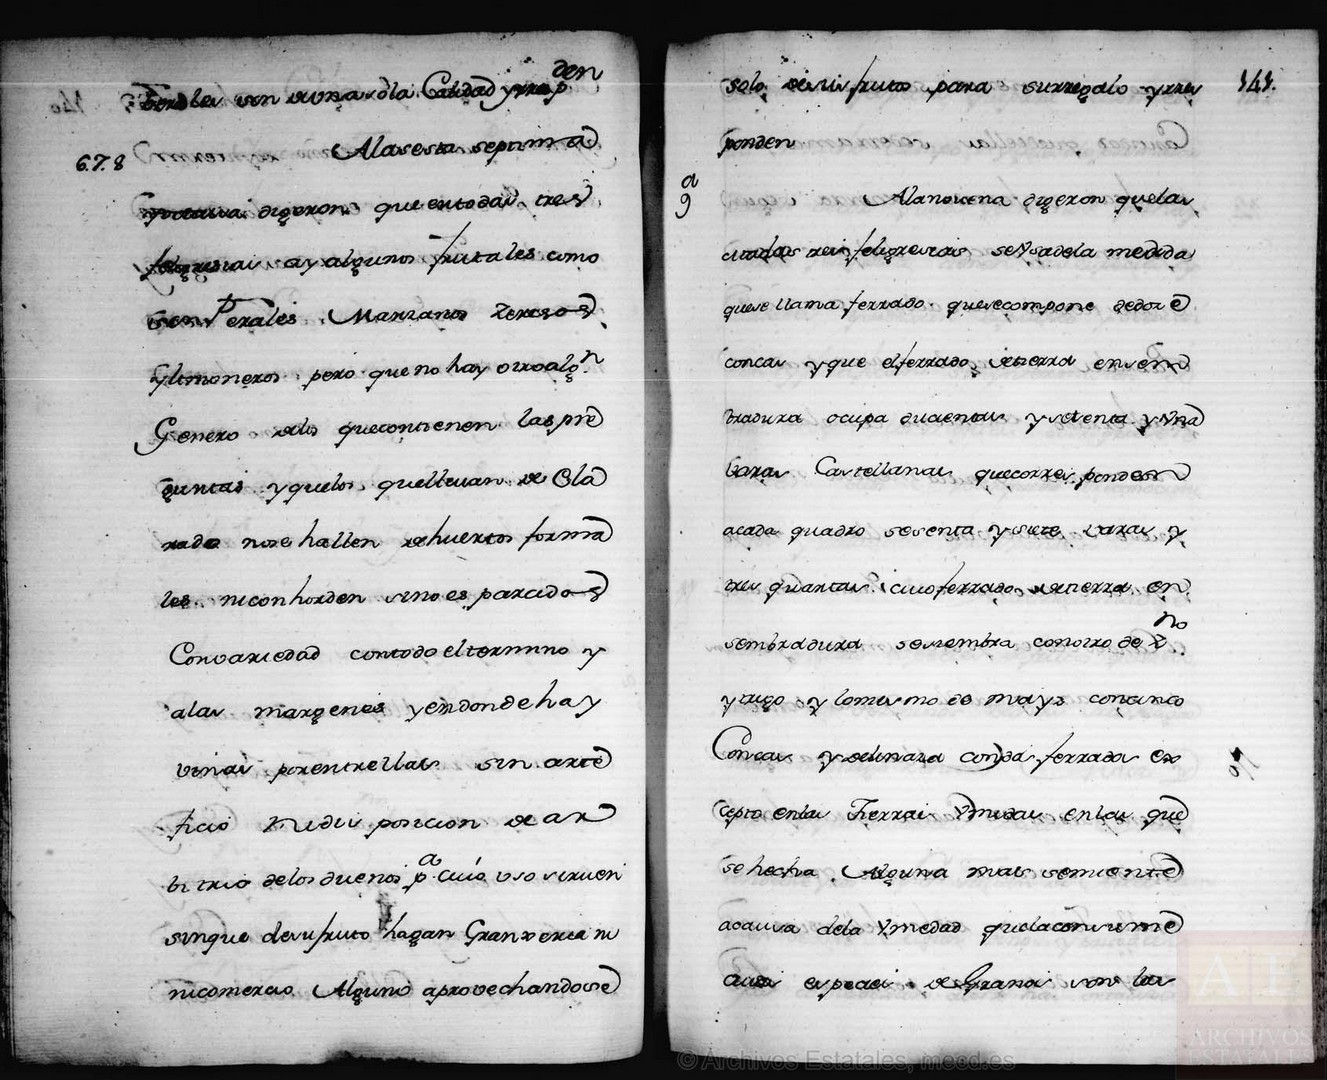 ferolas son de una sola Calidad y resp.den
6.7.8
A la sesta septima
y octava digeron que en todas tres
felegresias ay algunos frutales como
son Perales Manzanos Zerezos
y limoneros pero que no hay otro alg.n
Genero de los que contienen las pre
guntas y que los que llevan de Cla
rado no se hallen de huertos forma
les ni con horden sino esparcidos
Con variedad con todo el termino y
a las margenes y en donde hay
vinas por entre ellas sin arte
ficio ni dis posicion de ar
bitrio de los duenos p.a cuio uso sirven
sin que de su fruto hagan Granxeria ni
ni comercio Alguno aprovechandose
141.
solo de sus frutos para su rregalo y rres
ponden
a
9
A la novena digeron que las
citadas tres feligresias se Usa de la medida
que se llama ferrado que se compone de doze
concas y que el ferrado de tierra en sem
bradura ocupa ducientas y setenta y Una
baras Castellanas que corresponden
a cada quadro sesenta y siete varas y
tres quartas cuio ferrado de tierra en
sembradura se siembra con otro de z.no
y trigo y lo mismo de mayz con cinco
Concas y de linaza con dos ferrados ex
cepto en las Tierras Umidas en las que
se hecha Alguna mas semiente
a causa de la Umedad que la consume
cuias especies de Granos son las
© Archivos Estatales, mecd.es
AE
ARCHIVOS
ESTATALES